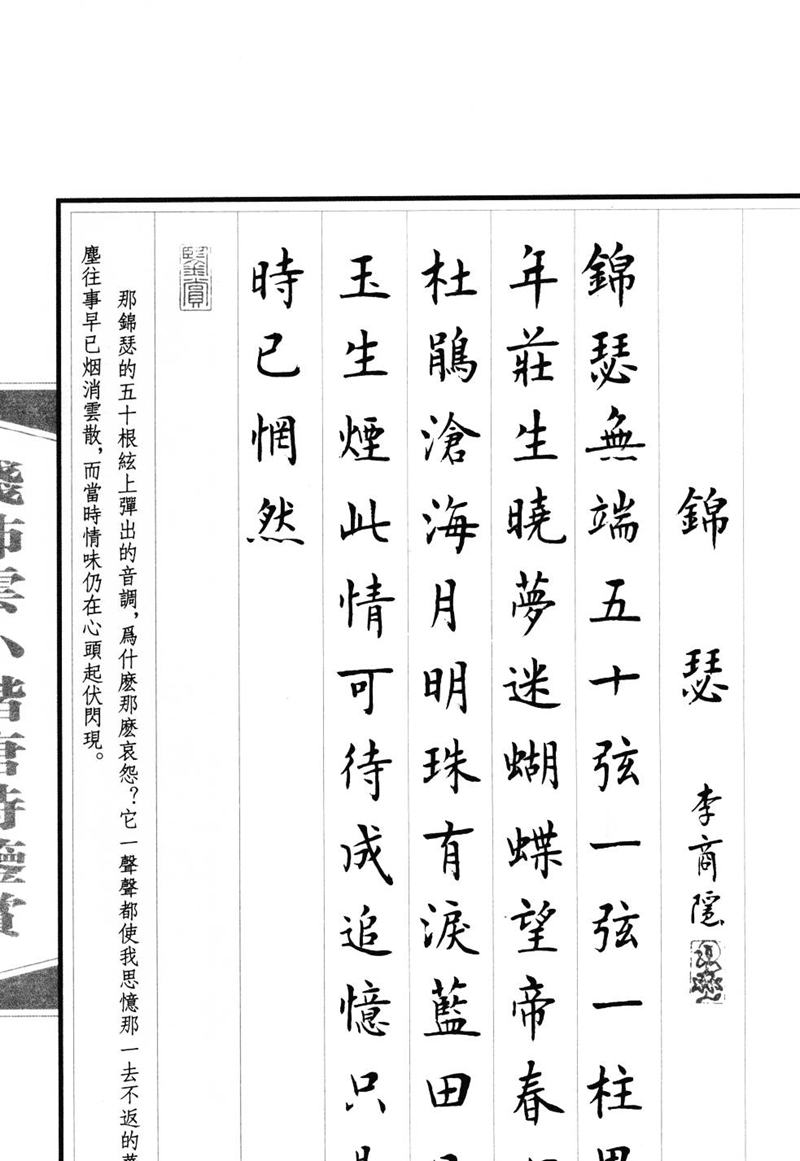 錦瑟
李商隱
錦瑟無端五十弦一弦一柱
年莊生曉夢迷蝴蝶望帝春
杜鵑滄海月明珠有淚藍田
玉生煙此情可待成追憶只
時已惘然
鑒賞
那錦瑟的五十根絃上彈出的音調，爲什麽那麽哀怨？它一聲聲都使我思憶那一去不返的
塵往事早已烟消雲散，而當時情味仍在心頭起伏閃現。
小楷唐詩鑒賞